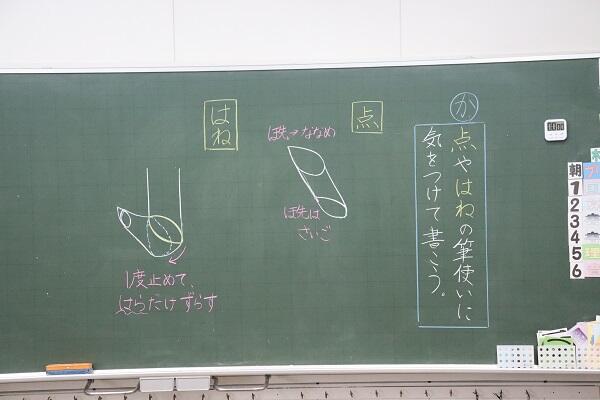 か
点やはねの筆使いに
気をつけて書こう。
点
ほ先→ななめ
ほ先は
さいご
はね
1度止めて、
はらだけずらす
朝
1
2
3
4
5
6
理